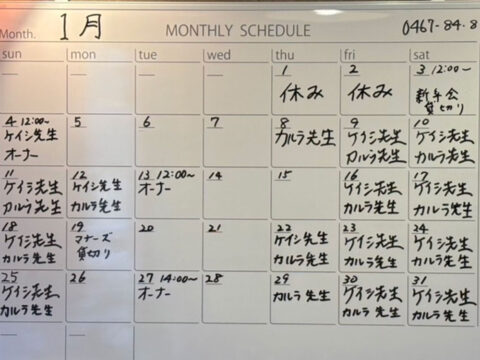 Month. 1月 MONTHLY SCHEDULE 0467-84-8
sun mon tue wed thu fri sat
1
休み
2
休み
3 12:00~
新年会
貸切り
4 12:00~
ケイシ先生
オーナー
5
6
7
8
カルラ先生
9
ケイシ先生
カルラ先生
10
ケイシ先生
カルラ先生
11
ケイシ先生
カルラ先生
12
ケイシ先生
カルラ先生
13 12:00~
オーナー
14
15
16
ケイシ先生
カルラ先生
17
ケイシ先生
カルラ先生
18
ケイシ先生
カルラ先生
19
マナーズ
貸切り
20
21
22
ケイシ先生
カルラ先生
23
ケイシ先生
カルラ先生
24
ケイシ先生
カルラ先生
25
ケイシ先生
カルラ先生
26
27 14:00~
オーナー
28
29
カルラ先生
30
ケイシ先生
カルラ先生
31
ケイシ先生
カルラ先生